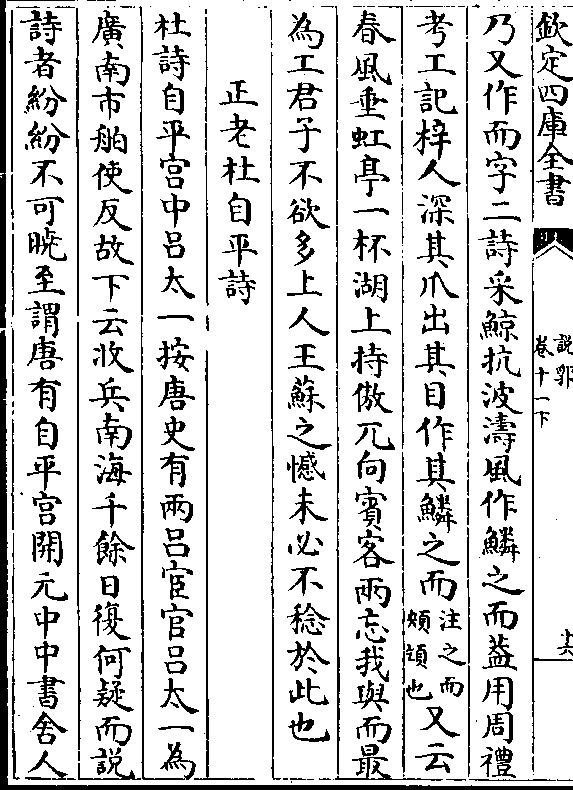 欽定四庫全書
說郛
卷十一下
十六
乃又作而字二詩采鯨抗波濤風作鱗之而葢用周禮
考工記梓人深其爪出其目作其鱗之而注之而頰頷也又云
春風垂虹亭一杯湖上持傲兀向賓客兩忘我與而最
為工君子不欲多上人王蘇之憾未必不稔於此也
正老杜自平詩
杜詩自平宫中呂太一按唐史有兩呂宦官呂太一為
廣南市舶使反故下云收兵南海千餘日復何疑而説
詩者紛紛不可曉至謂唐有自平宫開元中中書舍人